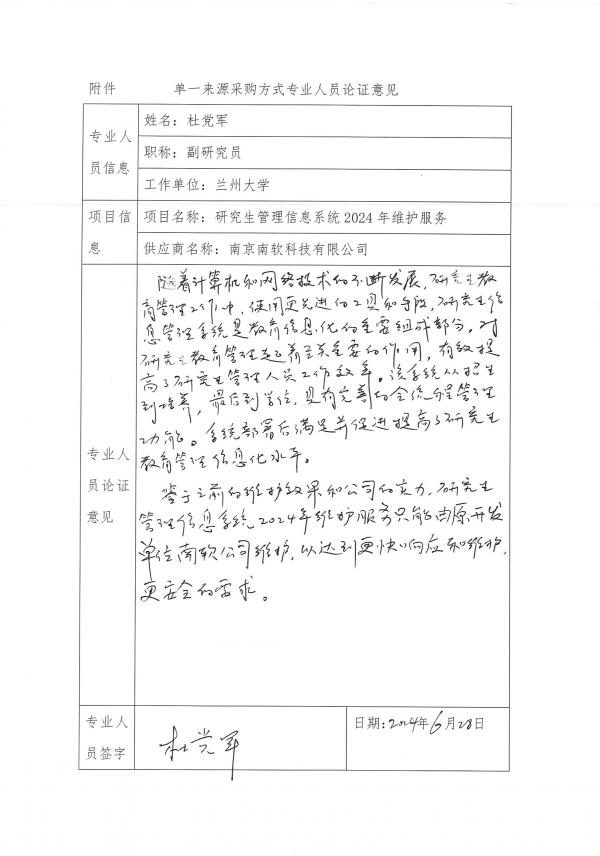 附件 单一来源采购方式专业人员论证意见
专业人员信息
姓名：杜党军
职称：副研究员
工作单位：兰州大学
项目信息
项目名称：研究生管理信息系统 2024 年维护服务
供应商名称：南京南软科技有限公司
专业人员论证意见
随着计算机和网络技术的不断发展，研究生教
育管理工作中，使用更先进的工具和手段，研究生信
息管理系统是教育信息化的重要组成部分。对
研究生教育管理起着至关重要的作用，有效提
高了研究生管理人员工作效率。该系统从招生
到培养，最后到学位，具有完善的全流程管理
功能。系统部署后满足并促进提高了研究生
教育管理信息化水平。
鉴于之前的维护效果和公司的实力，研究生
管理信息系统2024年维护服务只能由原开发
单位南软公司维护，以达到更快响应和维护，
更安全的需求。
专业人员签字
杜党军
日期：2024年6月28日